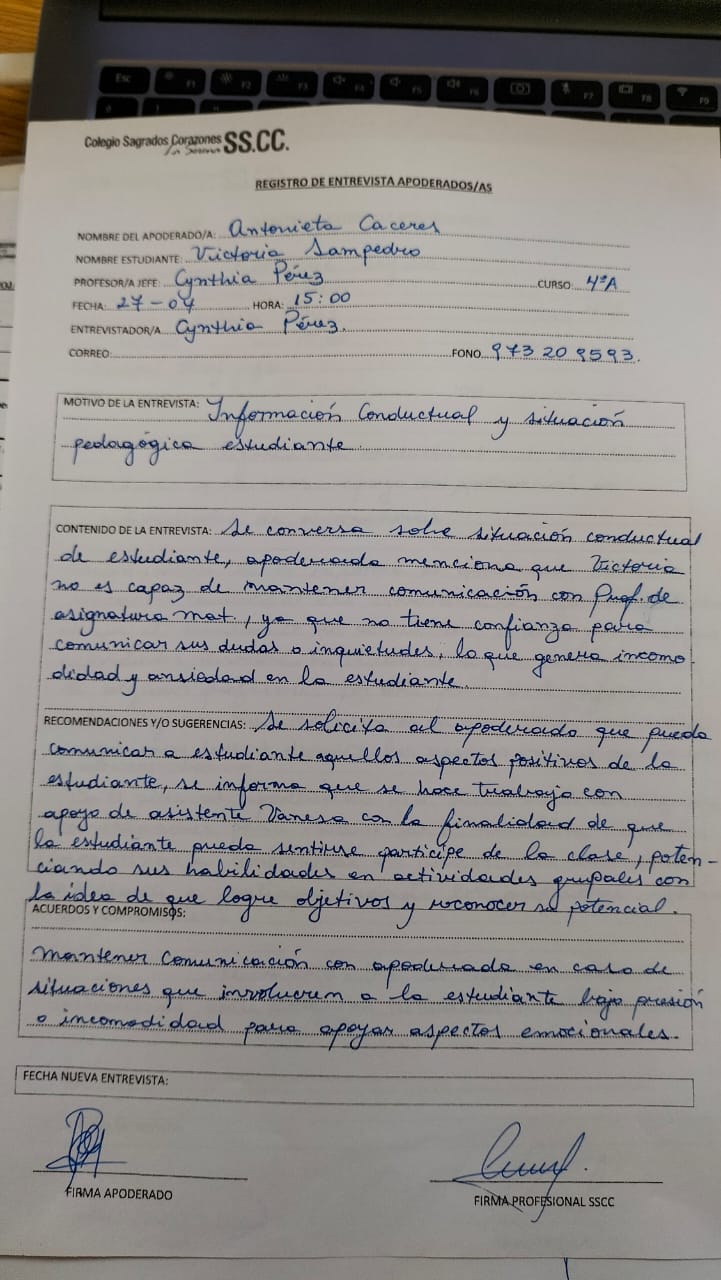 Esc F1 F2 F3 F4 F5 F6 F7 F8 F9
Colegio Sagrados Corazones SS.CC.
La Serena
REGISTRO DE ENTREVISTA APODERADOS/AS
NOMBRE DEL APODERADO/A: Antonieta Caceres
NOMBRE ESTUDIANTE: Victoria Sampedro
PROFESOR/A JEFE: Cynthia Pérez CURSO: 4ºA
FECHA: 27-07 HORA: 15:00
ENTREVISTADOR/A Cynthia Pérez.
CORREO: FONO 973 209593.
MOTIVO DE LA ENTREVISTA: Información Conductual y situación
pedagógica estudiante
CONTENIDO DE LA ENTREVISTA: Se conversa sobre situación conductual
de estudiante, apoderada menciona que Victoria
no es capaz de mantener comunicación con Prof. de
asignatura mat, ya que no tiene confianza para
comunicar sus dudas o inquietudes, lo que genera incomo
didad y ansiedad en la estudiante.
RECOMENDACIONES Y/O SUGERENCIAS: Se solicita al apoderado que pueda
comunicar a estudiante aquellos aspectos positivos de la
estudiante, se informa que se hace trabajo con
apoyo de asistente Vanesa con la finalidad de que
la estudiante pueda sentirse partícipe de la clase, poten-
ciando sus habilidades en actividades grupales con
la idea de que logre objetivos y reconocer su potencial.
ACUERDOS Y COMPROMISOS:
Mantener comunicación con apoderada en caso de
situaciones que involucren a la estudiante bajo presión
o incomodidad para apoyar aspectos emocionales.
FECHA NUEVA ENTREVISTA:
FIRMA APODERADO FIRMA PROFESIONAL SSCC